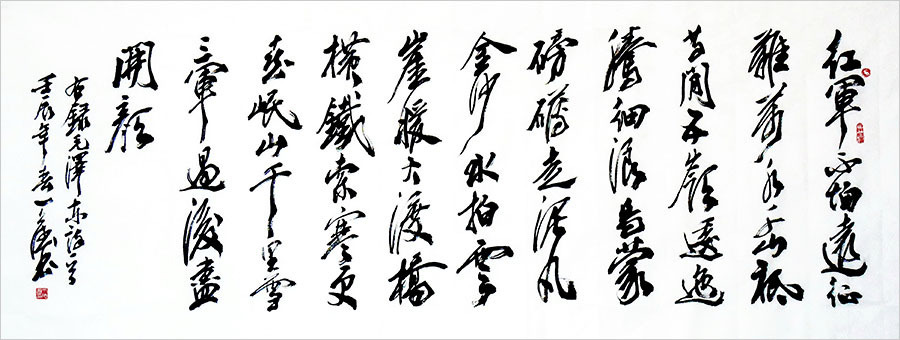 紅軍不怕遠征
難萬水千山祗
等閒五嶺逶迤
騰細浪烏蒙
磅礴走泥丸
金沙水拍雲
崖暖大渡橋
橫鐵索寒更
喜岷山千里雪
三軍過後盡
開顏
右録毛澤東詩一首
壬辰年春一